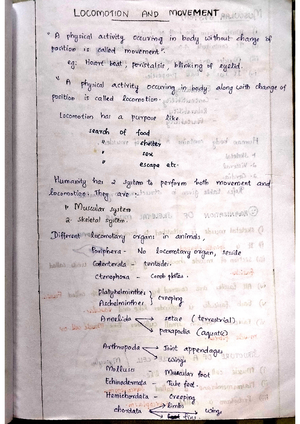 LOCOMOTION AND MOVEMENT
"A physical activity occuring in body without change of
position is called movement".
eg: Heart beat, peristalsis, blinking of eyelid.
" A physical activity occuring in body along with change of
position is called locomotion.
Locomotion has a purpose like
search of food
" shelter
" sex
" escape etc.
Humanity has 2 system to perform both movement and
locomotion. They are :
1. Muscular system
2. Skeletal system
Different locomotary organs in animals,
Poriphera - No locomotary organ, sessile
Colenterata - tentacles
Ctenophora - Comb plates.
Platyhelminthes
Aschelminthes } creeping
Annelida setae (terrestrial)
parapodia (aquatic)
Arthropoda Joint appendages
wings
Mollusca - Muscular foot
Echinodermata - Tube foot
Hemichordata - Creeping
chordata limbs wing
fins